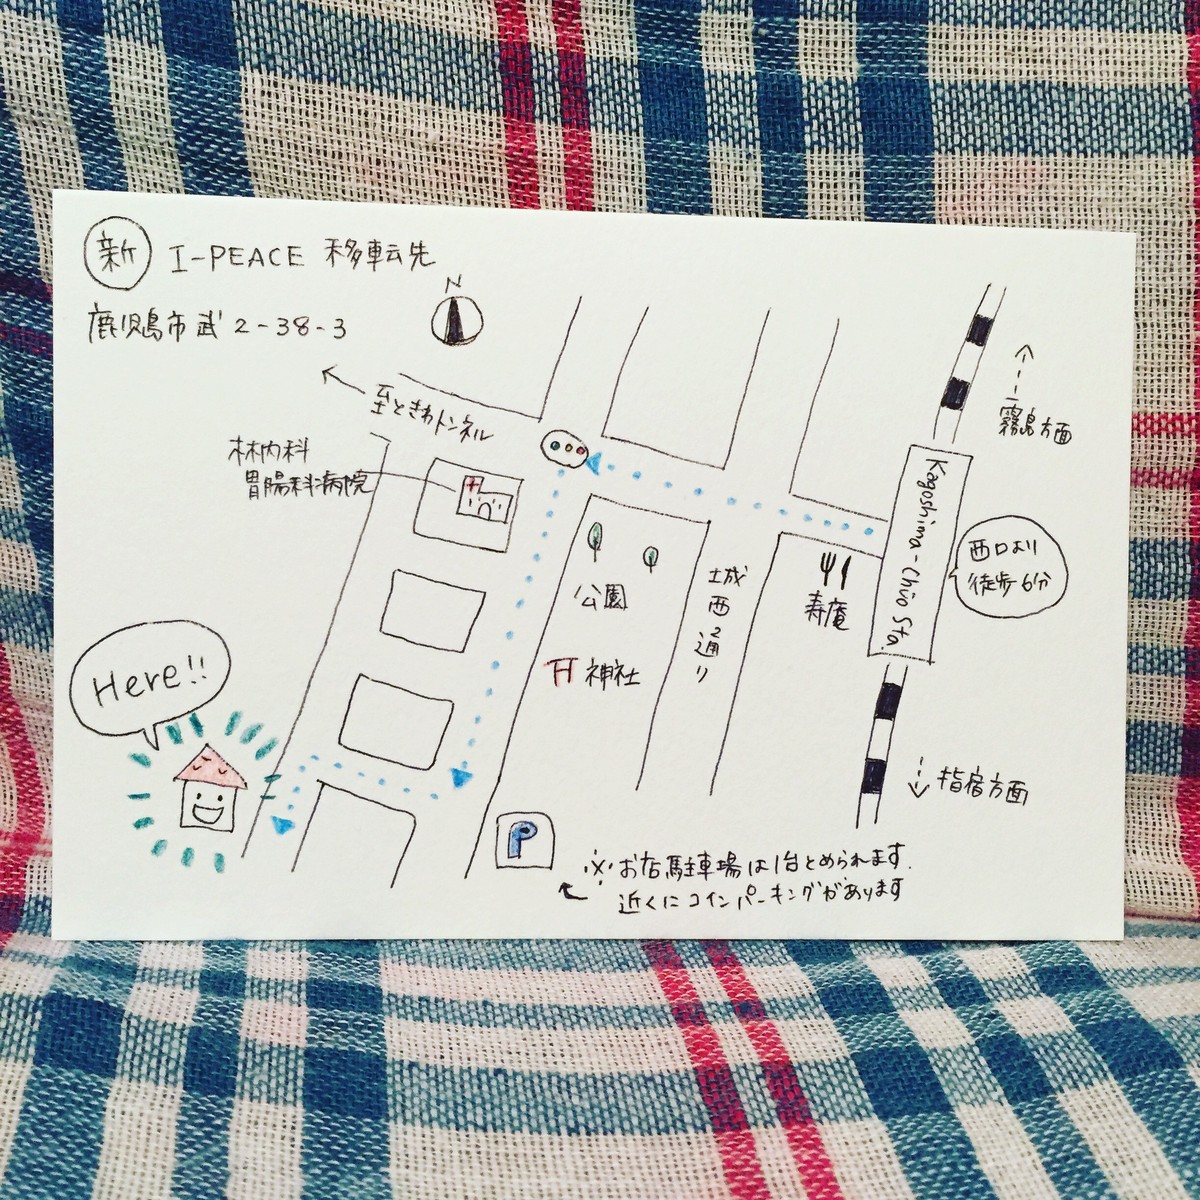 新 I-PEACE 移転先
鹿児島市武 2-38-3
N
至ときわトンネル
林内科
胃腸科病院
霧島方面
Kagoshima-Chūo Sta.
西口より
徒歩6分
公園
城西通り
寿庵
神社
Here!!
指宿方面
P
※お店駐車場は1台とめられます.
近くにコインパーキングがあります